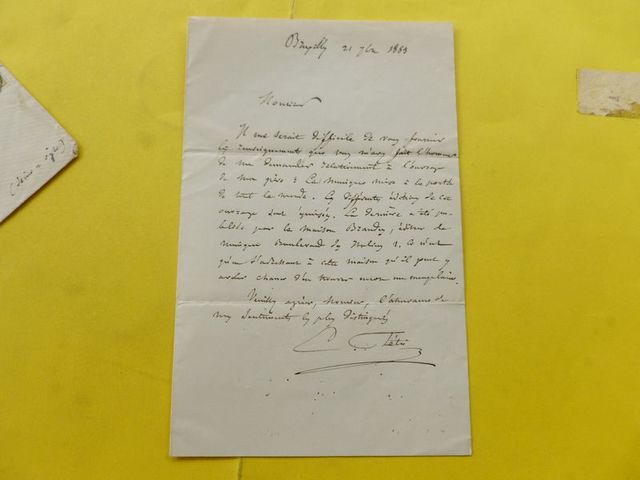 Bruxelles 21 9bre 1883
Monsieur
Il me serait difficile de vous fournir
les renseignements que vous m'avez fait l'honneur
de me demander relativement à l'ouvrage
de mon père : La musique mise à la portée
de tout le monde. Les différentes éditions de cet
ouvrage sont épuisées. La dernière a été pu-
bliée par la maison Brandus, éditeur de
musique Boulevard des Italiens 1. Ce n'est
qu'en s'adressant à cette maison qu'il peut y
avoir chance d'en trouver encore un exemplaire.
Veuillez agréer, Monsieur, l'assurance de
mes sentiments les plus distingués
Fétis